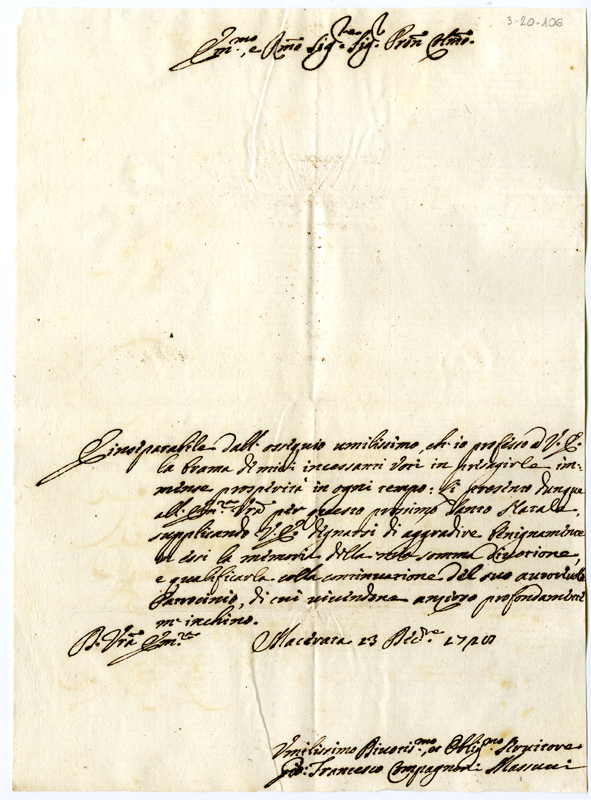 3-20-106
Em.mo, e Rmo Sig.re Sig.r Pron Colmo.
E' inseparabile dall' ossequio umilissimo, ch' io professo a V. E.
la brama di miei incessanti Voti in presagirle im-
mense prosperità in ogni tempo: Li presento dunque
all' Em.za Vra per questo prossimo Santo Natale,
supplicando V. E. degnarsi di aggradire benignamente
in essi la memoria della mia somma divozione,
e qualificarla colla continuazione del suo autorevole
Patrocinio, di cui vivendone ansioso profondamente
m' inchino.
D. Vra Em.za Macerata 23 Dec.re
Umilissimo Divotis.mo, et Oblig.mo Servitore
Gio: Francesco Compagnoni Massucci